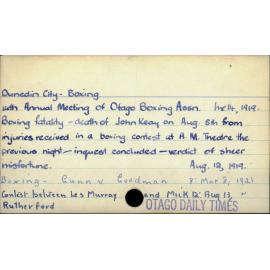 Dunedin City - Boxing
14th Annual Meeting of Otago Boxing Assn. 14, 1919.
Boxing fatality - death of John Keay on Aug. 8th from
injuries received in a boxing contest at H. M. Theatre the
previous night - inquest concluded - verdict of sheer
misfortune. Aug. 12, 1919.
Boxing - Gunn v Goodman 8: Mar 8, 1921
Contest between Les Murray and Mick 12: Aug 13, "
Rutherford OTAGO DAILY TIMES